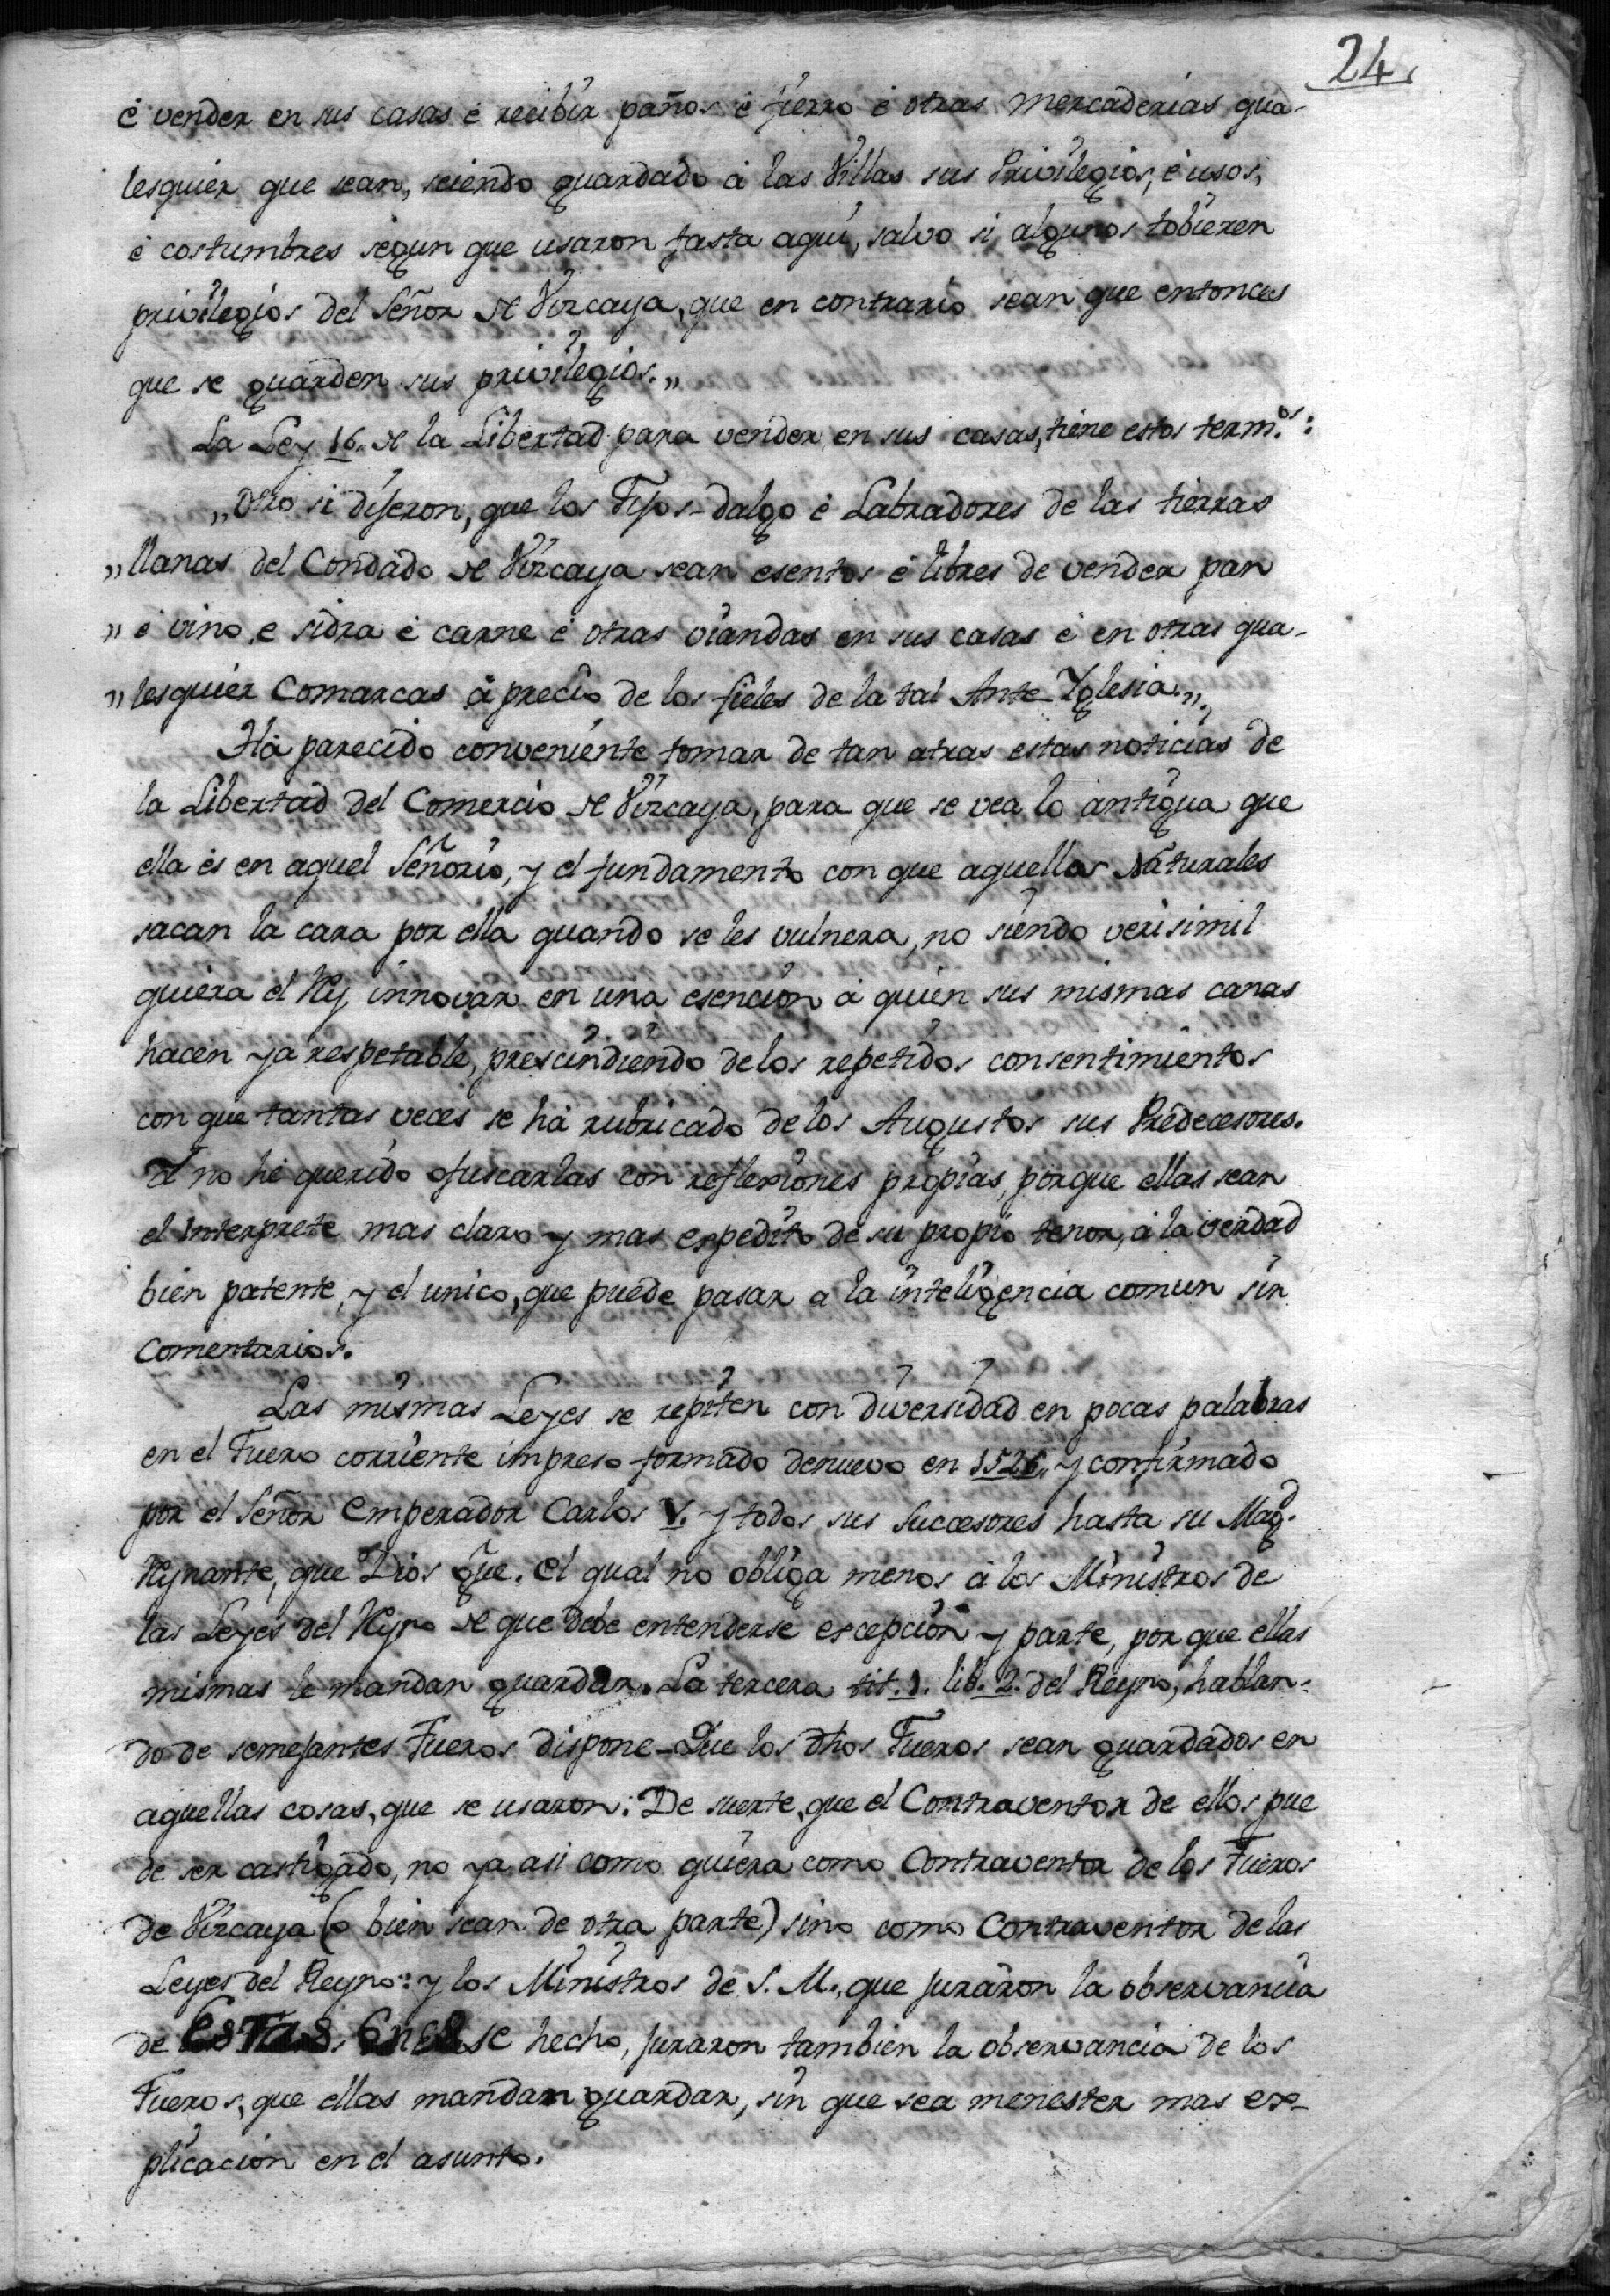 24.
è vender en sus casas è recibir paños è fierro è otras mercaderias qua-
lesquier que sean, seiendo guardado à las Villas sus Privilegios, è usos,
è costumbres segun que usaron fasta aqui, salvo si algunos tobieren
privilegios del Señor de Vizcaya, que en contrario sean que entonces
que se guarden sus privilegios.„
La Ley 16. de la Libertad para vender en sus casas, tiene estos term.os:
„Otro si dijeron, que los Fijos-dalgo è Labradores de las tierras
„llanas del Condado de Vizcaya sean esentos è libres de vender pan
„è vino, e sidra è carne è otras viandas en sus casas è en otras qua-
„lesquier Comarcas à precio de los fieles de la tal Ante-Yglesia.„
Hà parecido conveniente tomar de tan atras estas noticias de
la Libertad del Comercio de Vizcaya, para que se vea lo antigua que
ella ès en aquel Señorio, y el fundamento con que aquellos Naturales
sacan la cara por ella quando se les vulnera, no siendo verisimil
quiera el Rey innovar en una esencion à quien sus mismas canas
hacen ya respetable, prescindiendo de los repetidos consentimientos
con que tantas veces se hà rubricado de los Augustos sus Predecesores.
no hè querido ofuscarlas con reflexiones propias, porque ellas sean
el Interprete mas claro y mas expedito de su propio tenor, à la verdad
bien patente, y el unico, que puede pasar a la inteligencia comun sin
Comentarios.
Las mismas Leyes se repiten con diversidad en pocas palabras
en el Fuero corriente impreso formado denuevo en 1526„ y confirmado
por el Señor Emperador Carlos V. y todos sus Succesores hasta su Mag.d
Reynante, que Dios gũe. el qual no obliga menos à los Ministros de
las Leyes del Reyno de que debe entenderse excepcion y parte, por que ellas
mismas le mandan guardar. La tercera tit. 1. lib. 2. del Reyno, hablan-
do de semejantes Fueros dispone-Que los dhos Fueros sean guardados en
aquellas cosas, que se usaron: De suerte, que el Contraventor de ellos pue
de ser castigado, no ya asi como quiera como Contraventor de los Fueros
de Vizcaya (ò bien sean de otra parte) sino como Contraventor de las
Leyes del Reyno: y los Ministros de S. M., que juraron la observancia
de Estas, en ese hecho, juraron tambien la observancia de los
Fueros, que ellas mandan guardar, sin que sea menester mas ex-
plicacion en el asunto.